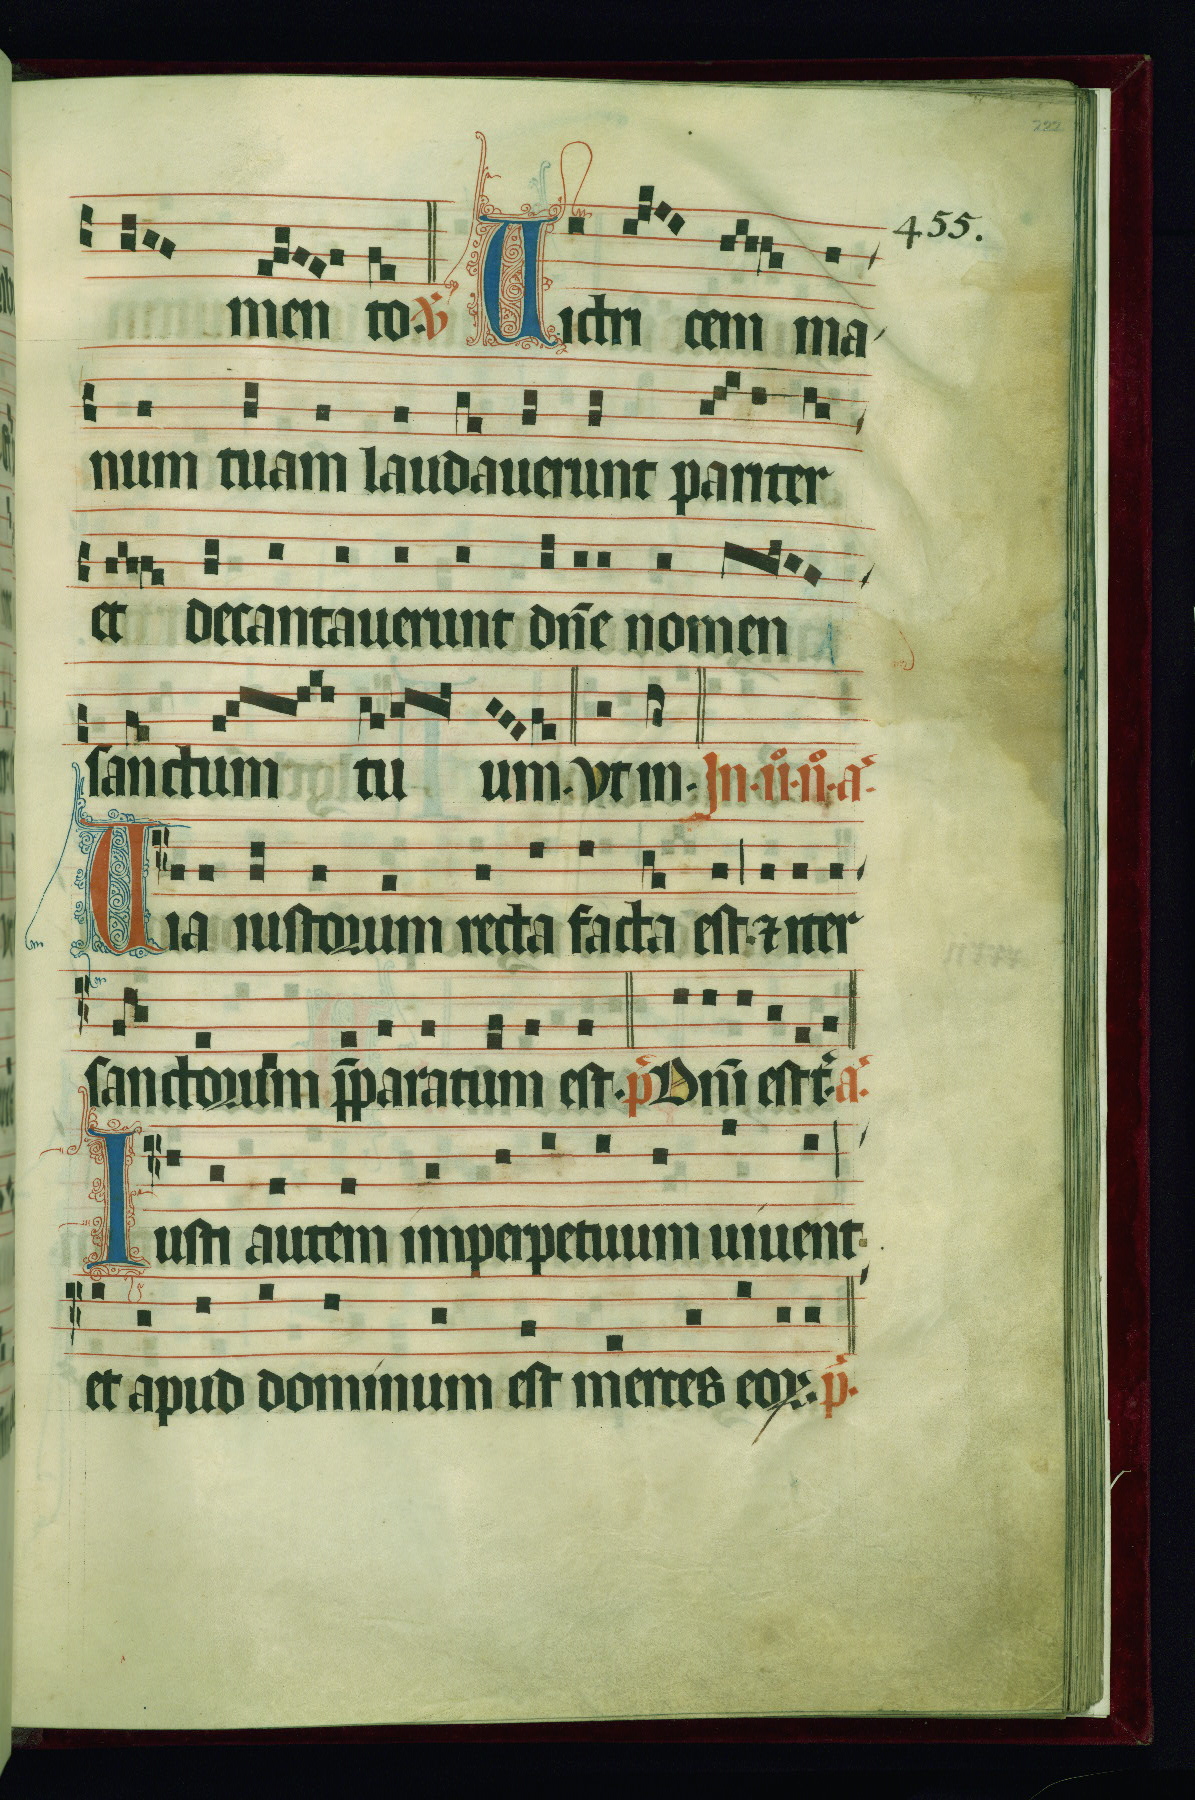 222
455.
men to. ℣ Victri cem ma
num tuam laudauerunt pariter
et decantauerunt dn̄e nomen
sanctum tu um. Vt in. In .ii°. n°. a͛.
Via iustorum recta facta est. ⁊ iter
sanctorum p̄paratum est. p͛ Dn̄i est t͛. a͛.
Iusti autem imperpetuum uiuent
et apud dominum est merces eoꝝ. p͛.